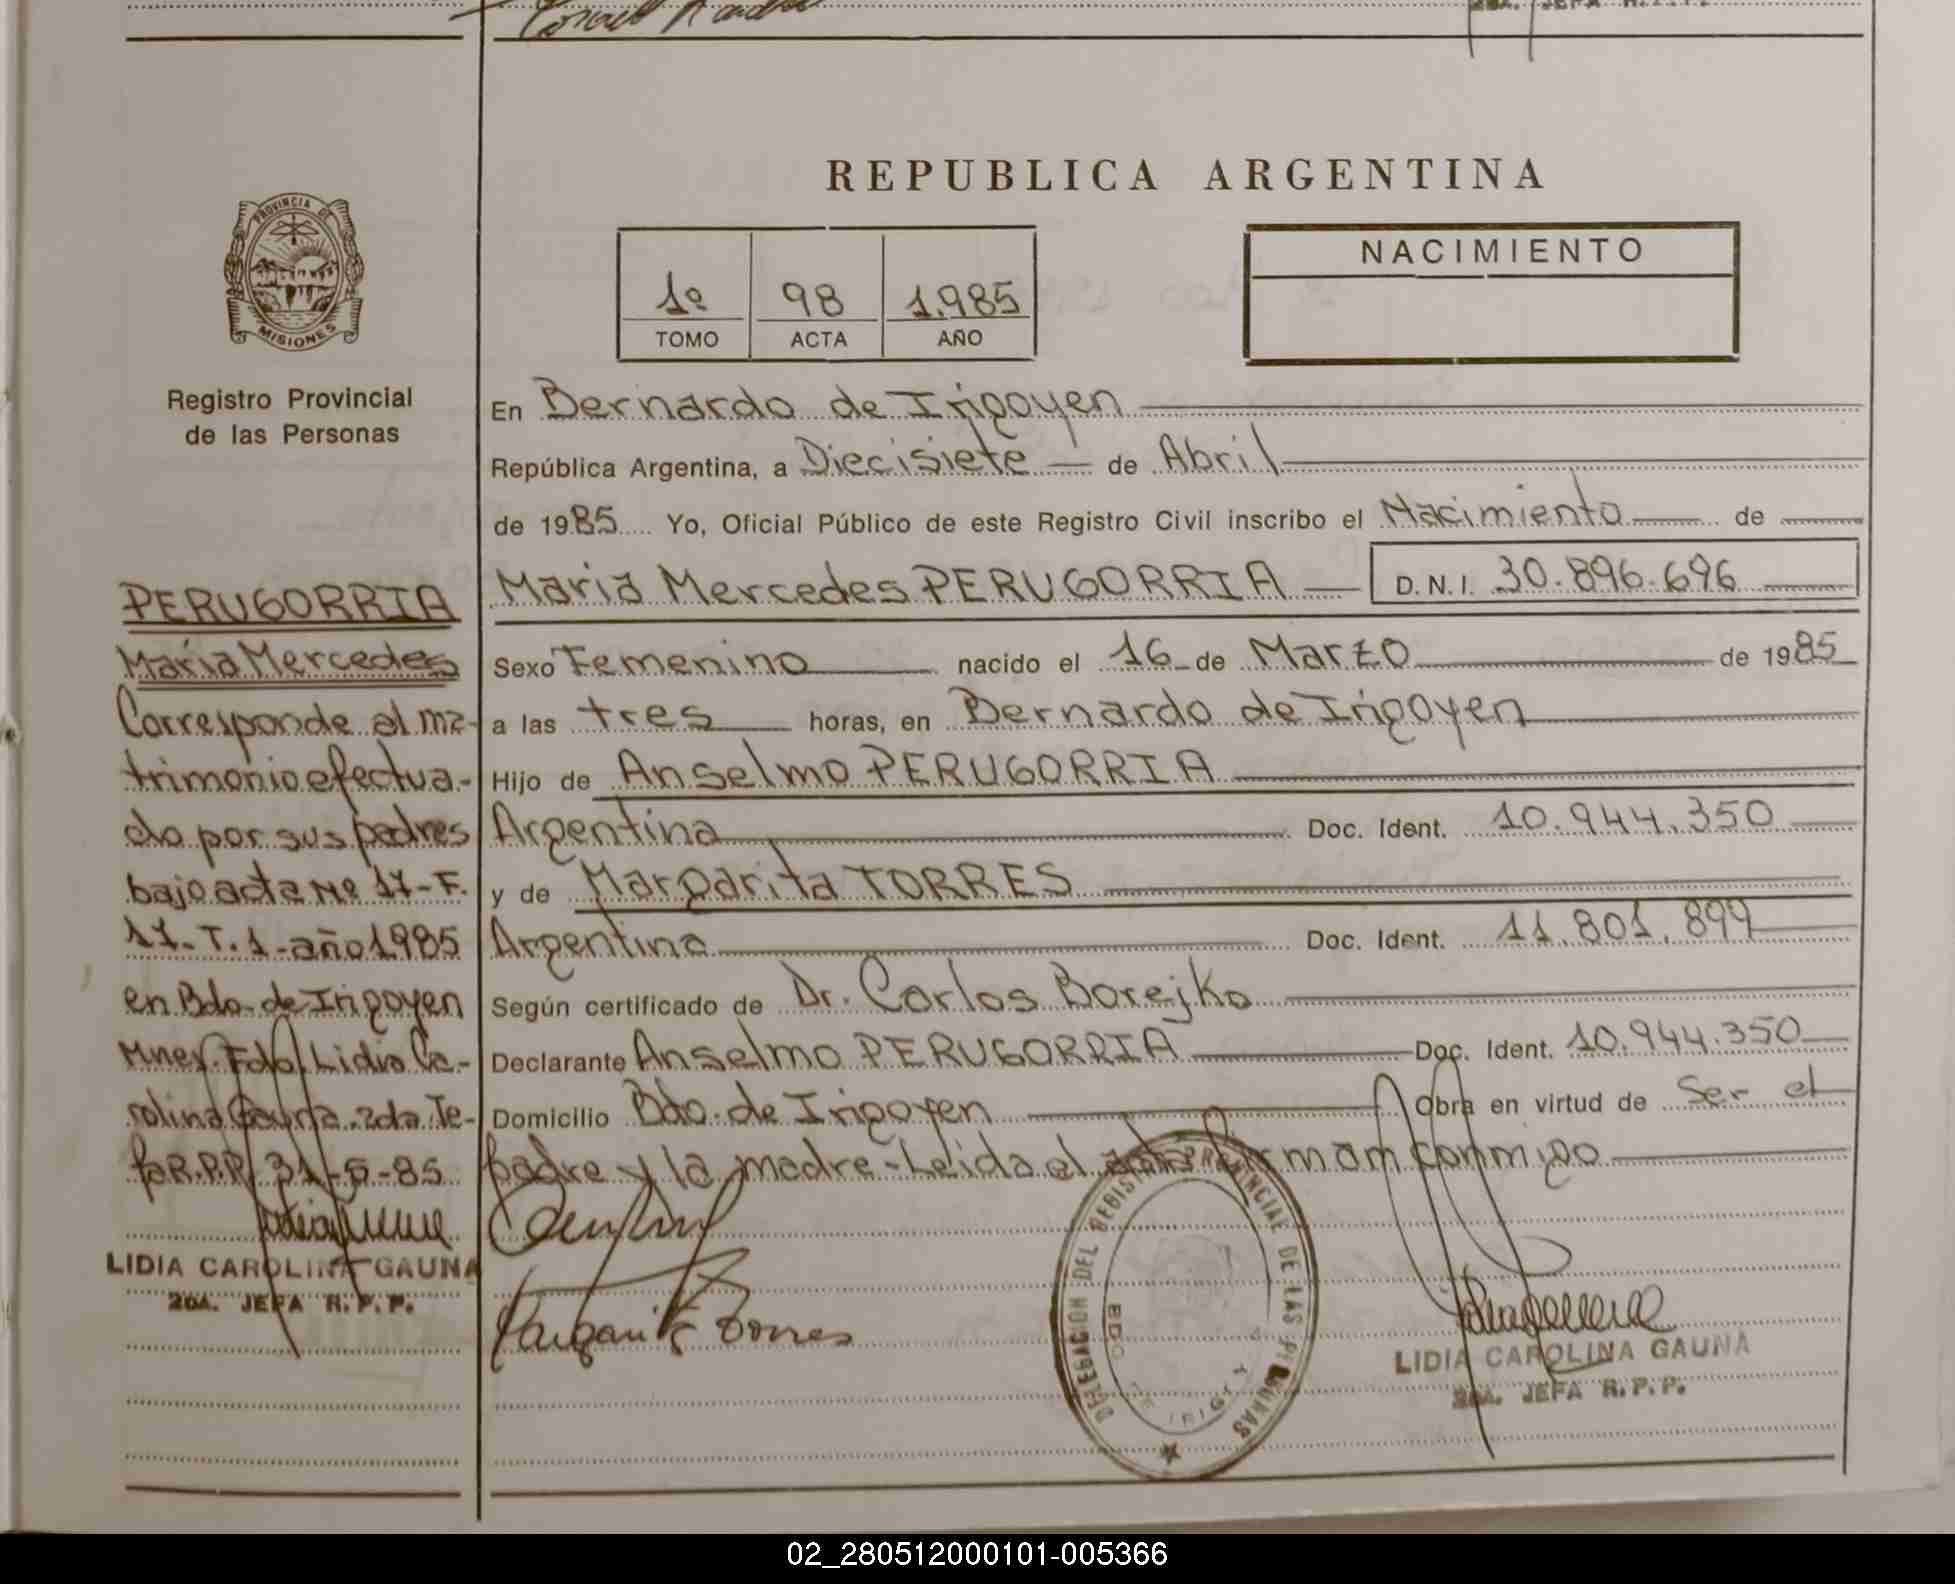 2DA. JEFA R.P.P.
REPUBLICA ARGENTINA
PROVINCIA DE
MISIONES
Registro Provincial
de las Personas
1º 98 1.985
TOMO ACTA AÑO
NACIMIENTO
En Bernardo de Irigoyen
República Argentina, a Diecisiete de Abril
de 1985 Yo, Oficial Público de este Registro Civil inscribo el Nacimiento de
Maria Mercedes PERUGORRIA D.N.I. 30.896.696
Sexo Femenino nacido el 16 de Marzo de 1985
a las tres horas, en Bernardo de Irigoyen
Hijo de Anselmo PERUGORRIA
Argentina Doc. Ident. 10.944.350
y de Margarita TORRES
Argentina Doc. Ident. 11.801.899
Según certificado de Dr. Carlos Borejko
Declarante Anselmo PERUGORRIA Doc. Ident. 10.944.350
Domicilio Bdo. de Irigoyen Obra en virtud de Ser el
padre y la madre - Leida el acta firman conmigo
Margarita Torres
DELEGACION DEL REGISTRO PROVINCIAL DE LAS PERSONAS
BDO. DE IRIGOYEN
LIDIA CAROLINA GAUNA
2DA. JEFA R.P.P.
PERUGORRIA
María Mercedes
Corresponde al ma-
trimonio efectua-
do por sus padres
bajo acta Nº 17-F.
17-T.1-año 1985
en Bdo. de Irigoyen
Mnes. Fdo. Lidia Ca-
rolina Gauna. 2da. Je-
fa R.P.P. 31-5-85
LIDIA CAROLINA GAUNA
2DA. JEFA R.P.P.
02_280512000101-005366